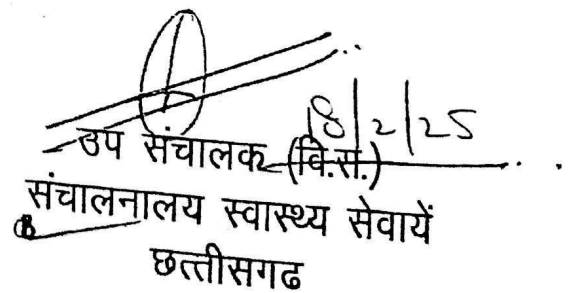 18/2/25
उप संचालक (वि.स.)
संचालनालय स्वास्थ्य सेवायें
छत्तीसगढ